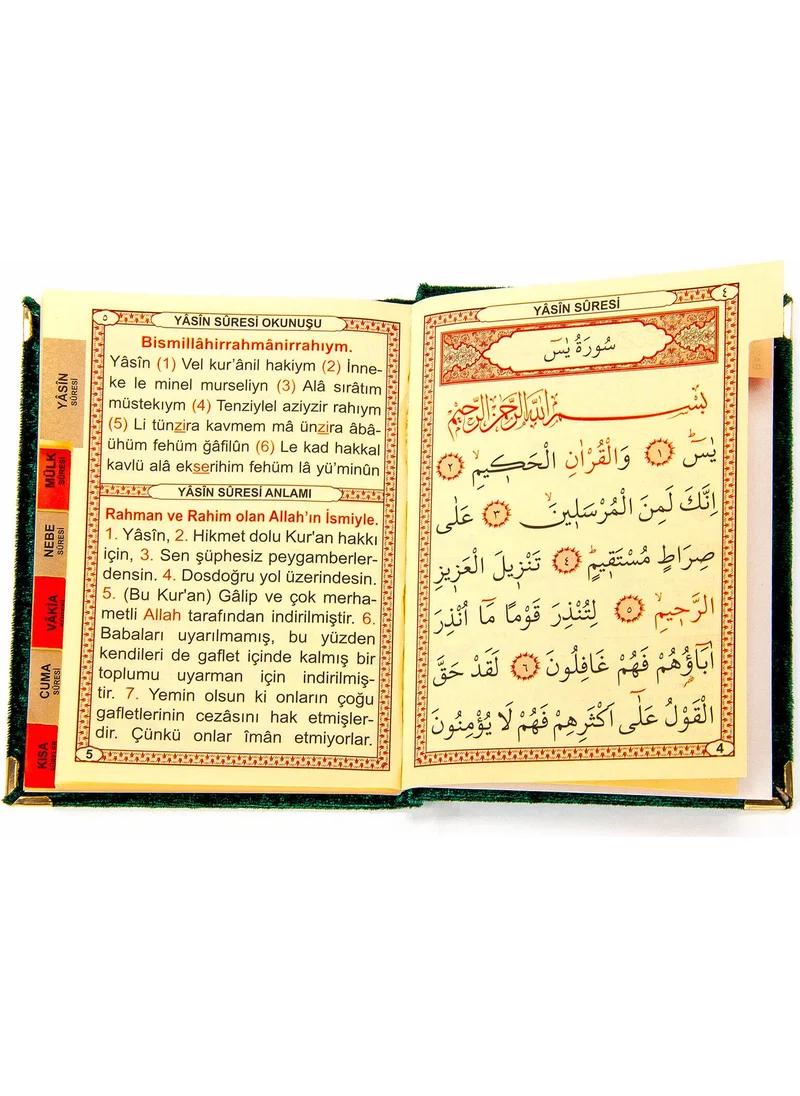 ٤
YÂSÎN SÛRESİ
سُورَةُ يٰسٓ
بِسْمِ اللّٰهِ الرَّحْمٰنِ الرَّحِيمِ
يٰسٓ ﴿١﴾ وَالْقُرْاٰنِ الْحَكِيمِۙ ﴿٢﴾
اِنَّكَ لَمِنَ الْمُرْسَلِينَۙ ﴿٣﴾ عَلٰى
صِرَاطٍ مُسْتَقِيمٍۜ ﴿٤﴾ تَنْزِيلَ الْعَزِيزِ
الرَّحِيمِۙ ﴿٥﴾ لِتُنْذِرَ قَوْمًا مَٓا اُنْذِرَ
اٰبَٓاؤُهُمْ فَهُمْ غَافِلُونَ ﴿٦﴾ لَقَدْ حَقَّ
الْقَوْلُ عَلٰٓى اَكْثَرِهِمْ فَهُمْ لَا يُؤْمِنُونَ
4
٥
YÂSİN SÛRESİ OKUNUŞU
Bismillâhirrahmânirrahıym.
Yâsîn (1) Vel kur’ânil hakiym (2) İnne-
ke le minel murseliyn (3) Alâ sırâtım
müstekıym (4) Tenziylel aziyzir rahıym
(5) Li tünzira kavmem mâ ünzira âbâ-
ühüm fehüm ğafilûn (6) Le kad hakkal
kavlü alâ ekserihim fehüm lâ yü’minûn
YÂSİN SÛRESİ ANLAMI
Rahman ve Rahim olan Allah’ın İsmiyle.
1. Yâsîn, 2. Hikmet dolu Kur'an hakkı
için, 3. Sen şüphesiz peygamberler-
densin. 4. Dosdoğru yol üzerindesin.
5. (Bu Kur'an) Gâlip ve çok merha-
metli Allah tarafından indirilmiştir. 6.
Babaları uyarılmamış, bu yüzden
kendileri de gaflet içinde kalmış bir
toplumu uyarman için indirilmiş-
tir. 7. Yemin olsun ki onların çoğu
gafletlerinin cezâsını hak etmişler-
dir. Çünkü onlar îmân etmiyorlar.
5
YÂSÎN
SÛRESİ
MÜLK
SÛRESİ
NEBE
SÛRESİ
VÂKIA
CUMA
SÛRESİ
KISA
SÛRELER